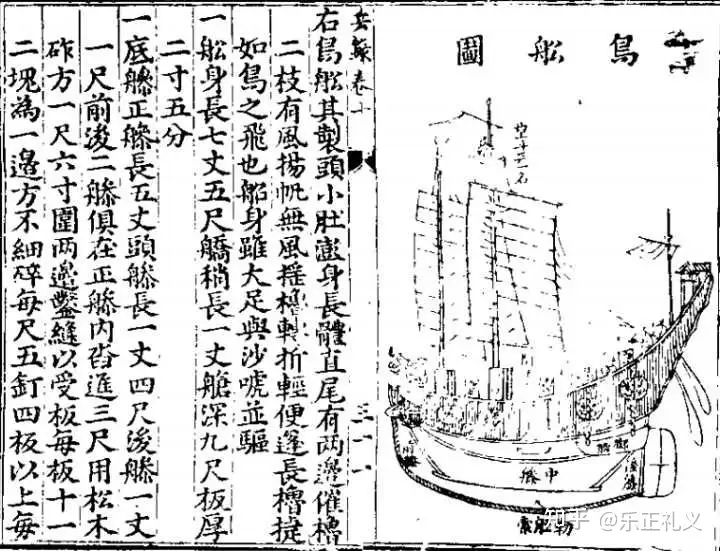 鳥船圖
中
勒
兵錄卷十
三一一
右鳥船其製頭小肚澎身長體直尾有兩邊催櫓
二枝有風揚帆無風搖櫓轉折輕便蓬長櫓捷
如鳥之飛也船身雖大足與沙唬並驅
一船身長七丈五尺稍長一丈艙深九尺板厚
二寸五分
一底正長五丈頭長一丈四尺後一丈
一尺前後二俱在正內沓進三尺用松木
砟方一尺六寸圍兩邊鑿縫以受板每板十一
二塊為一邊方不細碎每尺五釘四板以上每
知乎 @乐正礼义